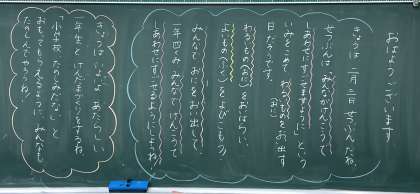 おはようございます
きょうは 二月三日 せつぶんだね。
せつぶんは みんながけんこうで
しあわせにすごせますように という
いみをこめて わるいものをおい出す
日だそうです。
(おに)
わるいもの(おに)をおいはらい、
よいもの(ふく)をよびこもう。
みんなで おにをおい出して
一年四くみ みんなで けんこうで
しあわせにすごせるようにしようね。
きょうは いよいよ あたらしい
一年生と けんばんをするね
小学校 たのしみだな」と
おもってもらえるように みんなも
たのしんでやろうね。